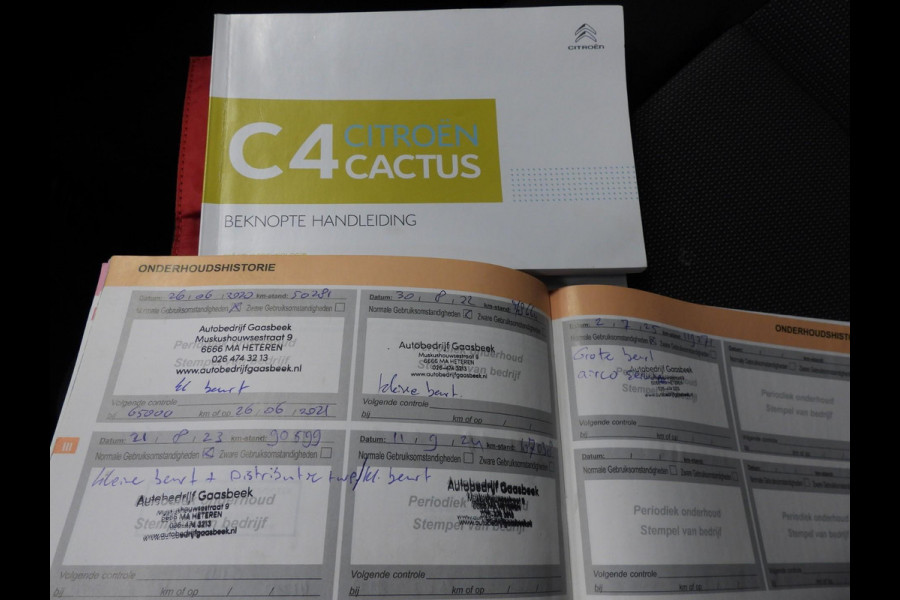 CITROËN
C4 CITROËN
CACTUS
BEKNOPTE HANDLEIDING
ONDERHOUDSHISTORIE
Datum: 26, 06, 2020 km-stand: 50281
Normale Gebruiksomstandigheden Zware Gebruiksomstandigheden
Autobedrijf Gaasbeek
Muskushouwsestraat 9
6666 MA HETEREN
026 474 32 13
www.autobedrijfgaasbeek.nl
Stempel van bedrijf
kl beurt
Volgende controle
bij 65000 km of op 26, 06, 2021
Datum: 30, 8, 22 km-stand:
Normale Gebruiksomstandigheden Zware Gebruiksomstandigheden
Autobedrijf Gaasbeek
Muskushouwsestraat 9
6666 MA HETEREN
026-474 3213
www.autobedrijfgaasbeek.nl
kleine beurt.
Volgende controle
bij km of op / /
III
21, 8, 23 km-stand: 90599
Normale Gebruiksomstandigheden Zware Gebruiksomstandigheden
kleine beurt + Distributie
Autobedrijf Gaasbeek
Muskushouwsestraat 9
6666 MA HETEREN
026-474 3213
www.autobedrijfgaasbeek.nl
Stempel van bedrijf
Volgende controle
bij km of op / /
Datum: 11, 9, 24 km-stand:
Normale Gebruiksomstandigheden Zware Gebruiksomstandigheden
kl. beurt
Autobedrijf Gaasbeek
Periodiek onderhoud
Stempel van bedrijf
Volgende controle
bij km of op / /
ONDERHOUDSHIST
Datum: 2, 7, 25
Normale Gebruiksomstandigheden Zware Gebruiksomstandigheden
Grote beurt
airco
Stempel van bedrijf
Volgende controle
bij km of op / /
Periodiek onderhoud
Stempel van bedrijf
Volgende controle
bij km of op
Datum:
Normale Gebruiksomstandigheden Zware Gebruiksomstandigheden
Periodiek onderhoud
Stempel van bedrijf
Volgende controle
bij km of op / /
Periodiek onderhoud
Stempel van bedrijf
Volgende controle
bij km of op